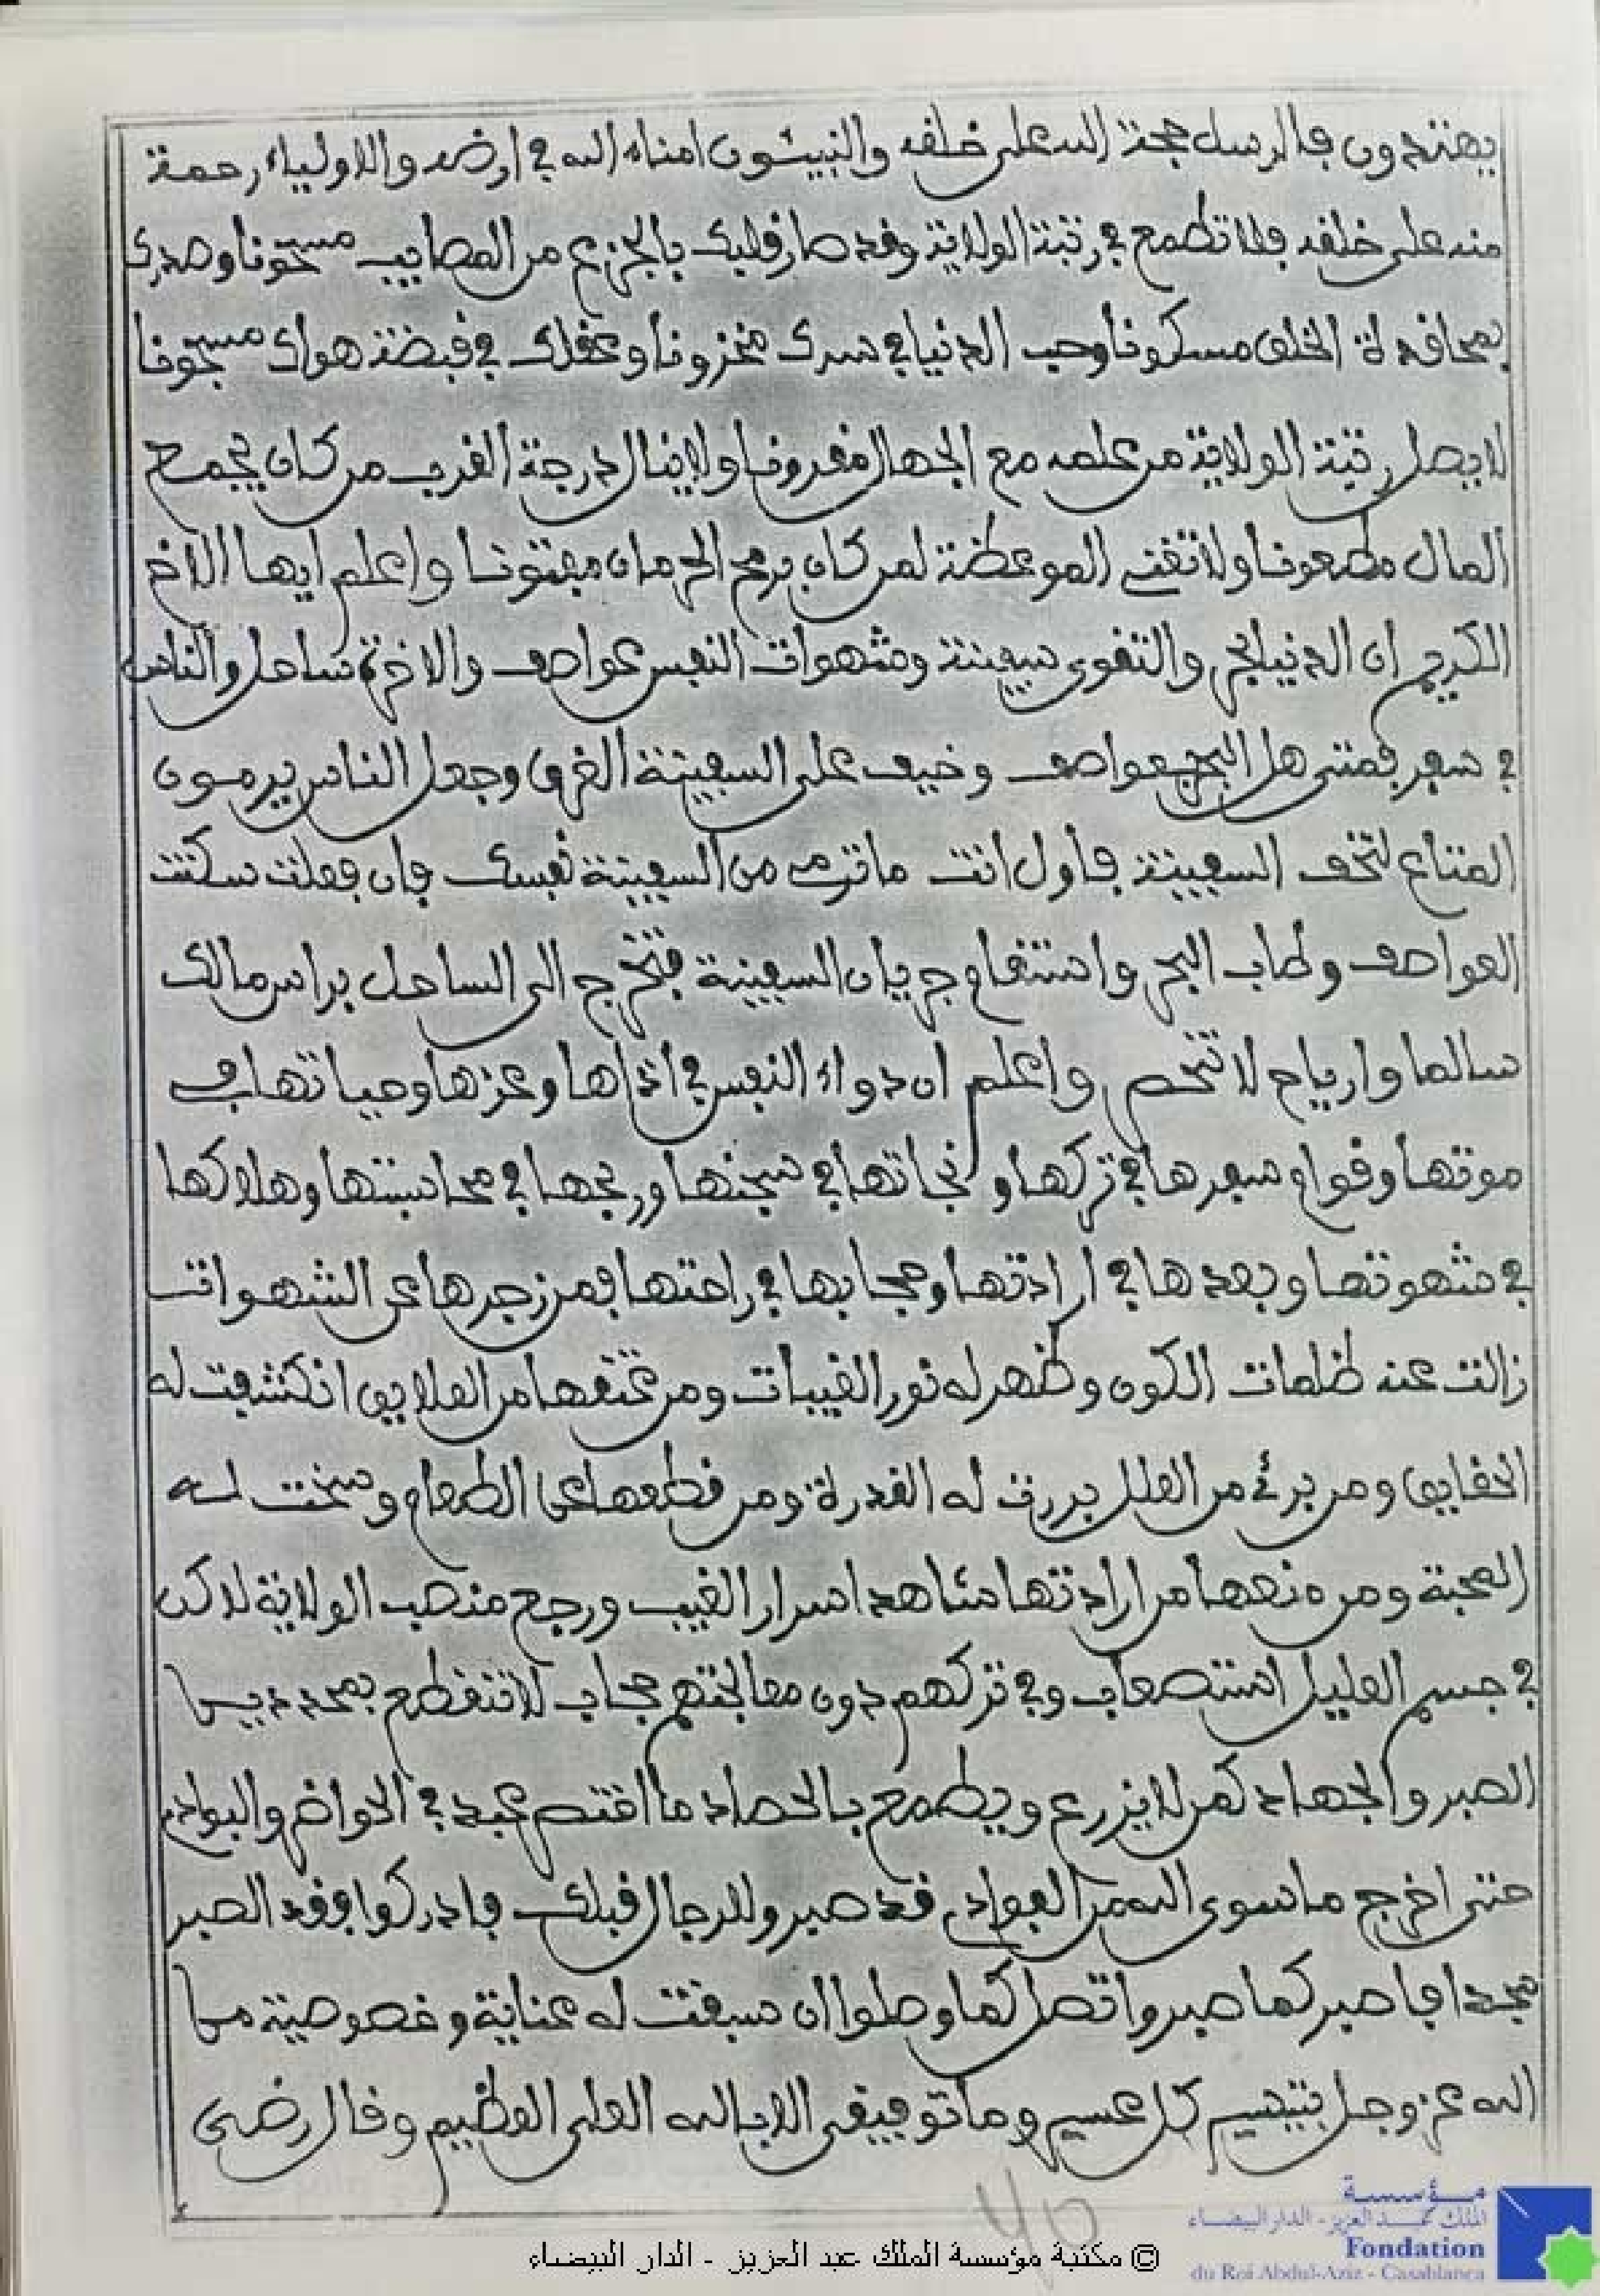 يهتدون فالرسل حجة الله على خلفه والنبيئون امناء الله في ارضه والاولياء رحمة
منه على خلفه فلا تطمع في رتبة الولاية وفد صار فلبك بالجزع من المصايب مسحونا وصدرك
الخلق مسكونا وحب الدنيا في سرك مخزونا وعفلك في فبضة هواك مسجونا
لا يصل رتبة الولاية من علمه مع الجهال مفرونا ولا ينال درجة الفرب من كان بجمع
المال مطعونا ولا تفنى الموعظة لمن كان برمح الحرمان مفتونا واعلم ايها الاخ
الكريم ان الدنيا بحر والتفوى سفينة وشهوات النفس عواصف والاخرة ساحل والناس
في سفر فمتى هل البحر عواصف وخيف على السفينة الغرق وجعل الناس يرمون
المتاع لتخف السفينة فاول انت ما ترمى من السفينة نفسك فان فعلت سكنت
العواصف وطاب البحر واستفام جريان السفينة فتخرج الى الساحل براس مالك
سالما وارباح لا تحصر واعلم ان دواء النفس في اذاها وعزها وحياتها في
موتها وفوام سفرها في تركها ونجاتها في سجنها وربحها في محاسبتها وهلاكها
في شهوتها وبعدها في ارادتها وحجابها في راحتها فمن زجرها عن الشهوات
زالت عنه ظلمات الكون وظهر له نور الغيبات ومن عتفها من العلايق انكشفت له
الحفايق ومن برئ من العلل برزت له الفدرة ومن فطعها عن الطعام وضحت له
المحبة ومن منعها من ارادتها شاهد اسرار الغيب ورجح منصب الولاية لاكن
في جسم العليل استصعاب وفي تركهم دون معالجتهم حجاب لا تنفطع
الصبر والجهاد كمن لا يزرع ويطمع بالحصاد ما افتصر عبد في الحواضر والبوادي
حتى اخرج ما سوى الله من الفوادي فد صبروا للرجال فبلك فادركوا بوفد الصبر
نجدا فاصبر كما صبروا تصل كما وصلوا ان سبفت له عناية وخصوصية من
الله عز وجل بتيسير كل عسير وما توفيفى الا بالله العلى العظيم وفال رضى
© مكتبة مؤسسة الملك عبد العزيز - الدار البيضاء
مؤسسة
الملك عبد العزيز - الدار البيضاء
Fondation
du Roi Abdul-Aziz - Casablanca